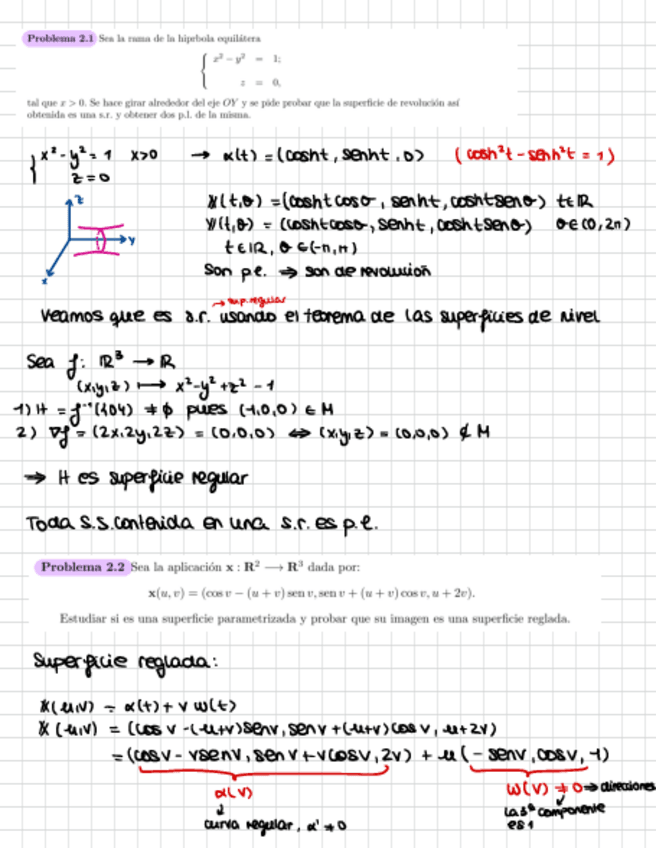 Problema 2.1 Sea la rama de la hipérbola equilátera
{ x² − y² = 1;
z = 0,
tal que x > 0. Se hace girar alrededor del eje OY y se pide probar que la superficie de revolución así
obtenida es una s.r. y obtener dos p.l. de la misma.
{ x² - y² = 1 x>0 → α(t) = (cosht, senht, 0) (cosh²t - senh²t = 1)
z = 0
X(t,θ) = (cosht cosθ, senht, cosht senθ) t∈ℝ
Y(t,θ) = (cosht cosθ, senht, cosht senθ) θ∈(0,2π)
t∈ℝ, θ∈(-π,π)
z
y
x
Son p.e. ⇒ son de revolución
→ sup. regular
Veamos que es s.r. usando el teorema de las superficies de nivel
Sea f: ℝ³ → ℝ
(x,y,z) ↦ x²-y²+z²-1
1) M = f⁻¹({0}) ≠ ϕ pues (-1,0,0) ∈ M
2) ∇f = (2x,2y,2z) = (0,0,0) ⇔ (x,y,z) = (0,0,0) ∉ M
→ M es superficie regular
Toda s.s. contenida en una s.r. es p.e.
Problema 2.2 Sea la aplicación x : R² ⟶ R³ dada por:
x(u, v) = (cos v − (u + v) sen v, sen v + (u + v) cos v, u + 2v).
Estudiar si es una superficie parametrizada y probar que su imagen es una superficie reglada.
Superficie reglada:
X(u,v) = α(t) + v w(t)
X(u,v) = (cos v -(u+v)senv, senv +(u+v)cos v, u+2v)
= (cosv - vsenv, sen v + vcosv, 2v) + u(- senv, cosv, 1)
α(v) w(v) ≠ 0 → direcciones
↓ ↓
curva regular, α' ≠ 0 la 3ª componente
es 1